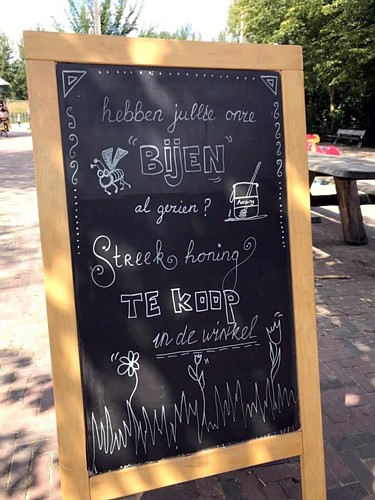 hebben jullie onze
"BIJEN"
al gezien?
Honing
Streek honing
TE KOOP
in de winkel